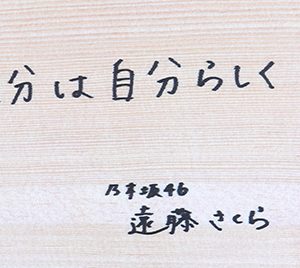 分は自分らしく
乃木坂46
遠藤さくら